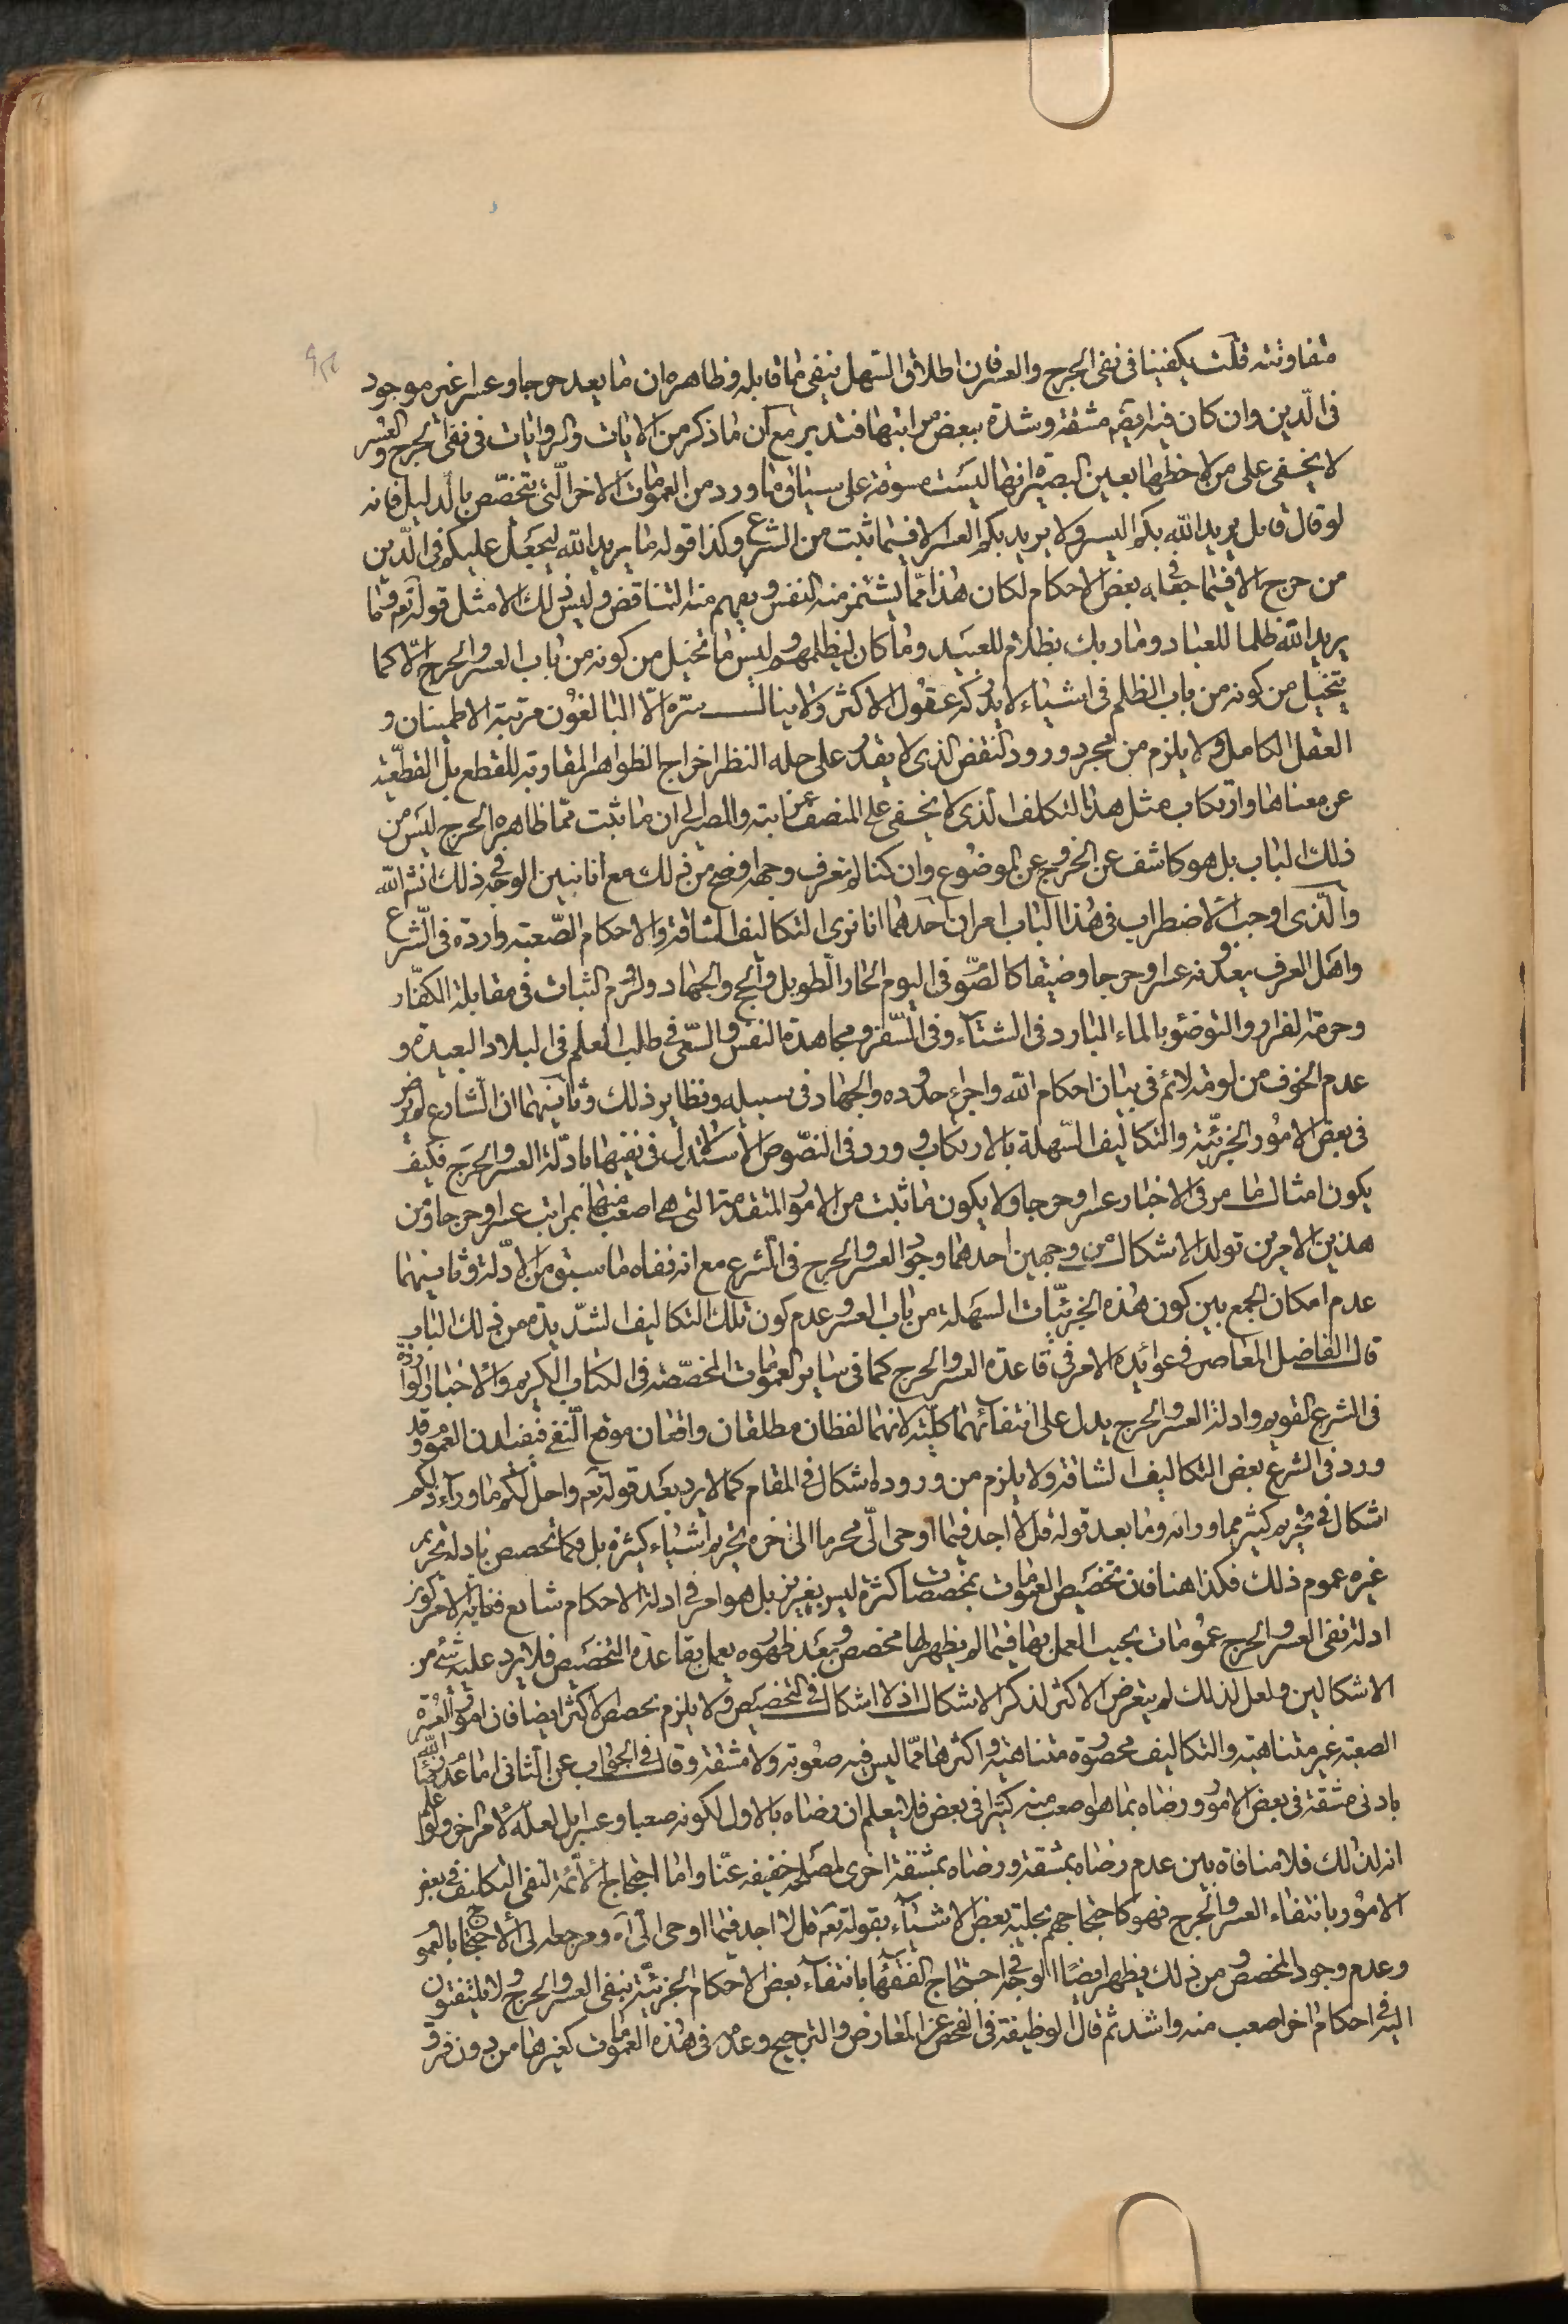 متفاوتة قلت يكفينا في نفى الحرج والعسر فان اطلاق السهل ينفى ما قابله وظاهره ان ما يعد حرجا وعسرا غير موجود
فى الدين وان كان فيه بقية مشقة وشدة ببعض مراتبها فتدبر مع ان ما ذكر من الايات والروايات في نفى الحرج والعسر
لا يخفى على من لاحظها بعين البصيرة انها ليست مسوقة على سياق ما ورد من العمومات الاخر التى تتخصص بالدليل فانه
لو قال قايل يريد الله بكم اليسر ولا يريد بكم العسر الا فيما ثبت من الشرع وكذا قوله ما يريد الله ليجعل عليكم فى الدين
من حرج الا فيما جعله في بعض الاحكام لكان هذا مما يشمئز منه النفس ويفهم منه التناقض وليس ذلك الا مثل قوله تع وما
يريد الله ظلما للعباد وما ربك بظلام للعبيد وما كان ليظلمهم وليس ما تخيل من كونه من باب العسر والحرج الا كما
يتخيل من كونه من باب الظلم فى اشياء لا يدركه عقول الاكثر ولا ينال سره الا البالغون مرتبة الاطمينان و
العقل الكامل ولا يلزم من مجرد ورود النقض الذى لا يقدر على حله النظر اخراج الظواهر المقاوبة للقطع بل القطعية
عن معناها وارتكاب مثل هذا التكلف الذى لا يخفى على المنصف غرابته والمصير الى ان ما ثبت مما ظاهره الحرج ليس من
ذلك الباب بل هو كاشف عن الخروج عن الموضوع وان كنا لم نعرف وجها اوضح من ذلك مع انا نبين الوجه في ذلك انشاء الله
والذى اوجب الاضطراب فى هذا الباب امران احدهما انا نرى التكاليف الشاقة والاحكام الصعبة واردة فى الشرع
واهل العرف يعدونه عسرا وحرجا وضيقا كالصوم فى اليوم الحار الطويل والحج والجهاد ولزوم الثبات فى مقابلة الكفار
وحرمة الفرار والتوضئ بالماء البارد فى الشتاء وفى السفر ومجاهدة النفس والسعى في طلب العلم فى البلاد البعيدة و
عدم الخوف من لومة لائم فى بيان احكام الله واجراء حدوده والجهاد فى سبيله ونظاير ذلك وثانيهما ان الشارع لم يرض
فى بعض الامور الجزئية والتكاليف السهلة بالارتكاب وورد فى النصوص الاستدلال فى نفيها بادلة العسر والحرج فكيف
يكون امثال ما مر فى الاخبار عسرا وحرجا ولا يكون ما ثبت من الامور المتقدمة التى هى اصعب منها بمراتب عسرا وحرجا ومن
هذين الامرين تولد الاشكال من وجهين احدهما وجود العسر والحرج فى الشرع مع انه نفاه ما سبق من الادلة وثانيهما
عدم امكان الجمع بين كون هذه الجزئيات السهلة من باب العسر وعدم كون تلك التكاليف الشديدة من ذلك الباب
قال الفاضل المعاصر في عوائده الامر فى قاعدة العسر والحرج كما فى ساير العمومات المخصصة فى الكتاب الكريم والاخبار الواردة
فى الشرع القويم وادلة العسر والحرج يدل على انتفائهما كلية لانهما لفظان مطلقان واقعان موقع النفى فيفيدان العموم وقد
ورد فى الشرع بعض التكاليف الشاقة ولا يلزم من وروده اشكال في المقام كما لا يرد بعد قوله تع واحل لكم ما وراء ذلكم
اشكال في تحريم كثير مما وراءه وما بعد قوله قل لا اجد فيما اوحى الى محرما الى اخره تحريم اشياء كثيرة بل فكما تخصص بادلة تحريم
غيره عموم ذلك فكذا هنا فان تخصيص العمومات بمخصصات كثيرة ليس بعزيز بل هو امر في ادلة الاحكام شايع فغاية الامر كون
ادلة نفى العسر والحرج عمومات يجب العمل بها فيما لم يظهر لها مخصص وبعد ظهوره يعمل بقاعدة التخصيص فلا يرد عليه شئ من
الاشكالين ولعل لذلك لم يتعرض الاكثر لذكر الاشكال اذ لا اشكال في التخصيص ولا يلزم تخصيص الاكثر ايضا فان امور العسرة
الصعبة غير متناهية والتكاليف محصورة متناهية واكثرها مما ليس فيه صعوبة ولا مشقة وقال في الجواب عن الثانى اما عدم رضا الله
بادنى مشقة فى بعض الامور ورضاه بما هو اصعب منه كثيرا فى بعض فلا يعلم ان رضاه بالاول لكونه صعبا وعسرا بل لعله لامر اخر ولو علم
انه لذلك فلا منافاة بين عدم رضاه بمشقة ورضاه بمشقة اخرى لمصلحة خفيفة عنا واما احتجاج الائمة لنفى التكليف في بعض
الامور بانتفاء العسر والحرج فهو كاحتجاجهم بحلية بعض الاشياء بقوله تع قل لا اجد فيما اوحى الى اه ومرجعه الى الاحتجاج بالعموم
وعدم وجود المخصص ومن ذلك يظهر ايضا الوجه في احتجاج الفقهاء بانتفاء بعض الاحكام الجزئية بنفى العسر والحرج ولا يلتفتون
اليه في احكام اخر اصعب منه واشد ثم قال الوظيفة فى الفحص عن المعارض والترجيح وعدمه فى هذه العمومات كغيرها من دون فرق